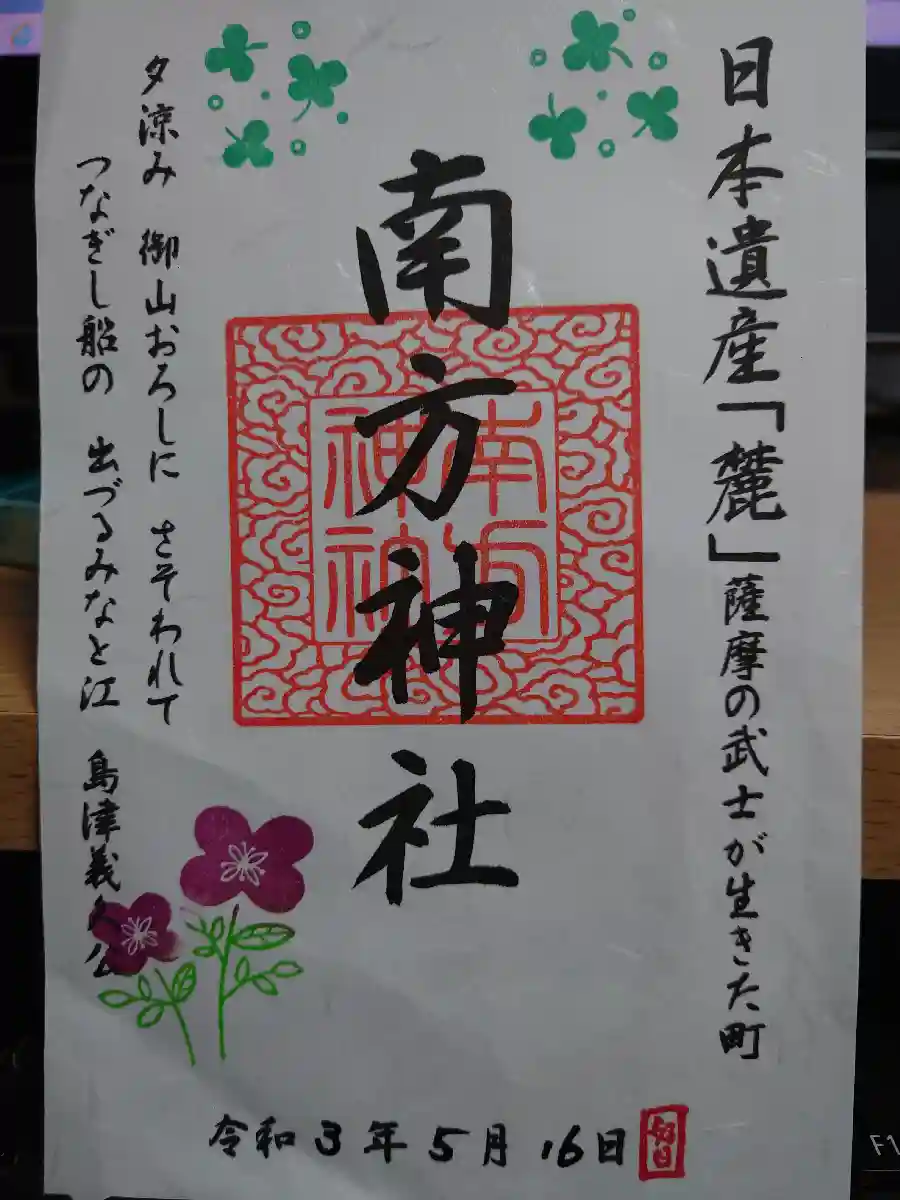 日本遺産「麓」薩摩の武士が生きた町
南方神社
南方
神社
夕涼み 御山おろしに さそわれて
つなぎし船の 出づるみなと江 島津義久公
令和3年5月16日
F1